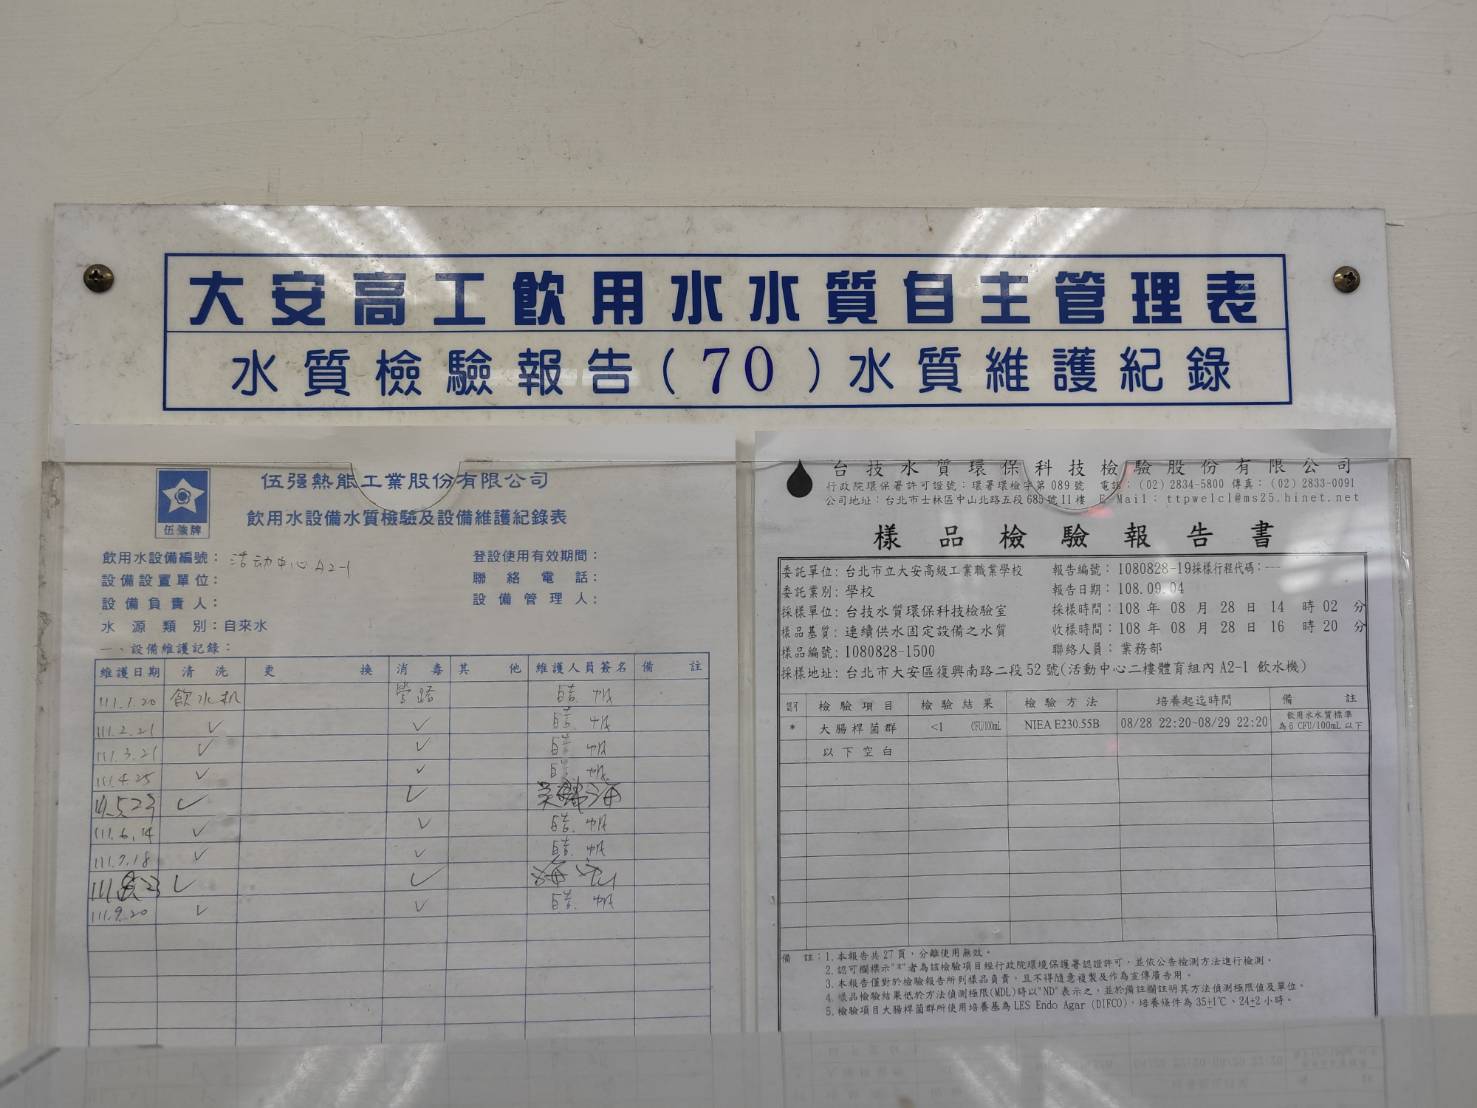 大安高工飲用水水質自主管理表
水質檢驗報告(70)水質維護紀錄
伍強牌
伍强熱能工業股份有限公司
飲用水設備水質檢驗及設備維護紀錄表
飲用水設備編號：活动中心A2-1
登設使用有效期間：
設備設置單位：
聯絡電話：
設備負責人：
設備管理人：
水源類別：自來水
一、設備維護記錄：
維護日期 清洗 更換 消毒 其他 維護人員簽名 備註
111.1.20 飲水机 管路
111.2.21 ✓ ✓
111.3.21 ✓ ✓
111.4.25 ✓ ✓
111.5.23 ✓ ✓
111.6.14 ✓ ✓
111.7.18 ✓ ✓
✓ ✓
111.9.20 ✓ ✓
台技水質環保科技檢驗股份有限公司
行政院環保署許可證號：環署環檢字第089號 電話：(02) 2834-5800 傳真：(02) 2833-0091
公司地址：台北市士林區中山北路五段685號11樓 E-Mail：ttpwelcl@ms25.hinet.net
樣品檢驗報告書
委託單位：台北市立大安高級工業職業學校 報告編號：1080828-19採樣行程代碼：---
委託業別：學校 報告日期：108.09.04
採樣單位：台技水質環保科技檢驗室 採樣時間：108 年 08 月 28 日 14 時 02 分
樣品基質：連續供水固定設備之水質 收樣時間：108 年 08 月 28 日 16 時 20 分
樣品編號：1080828-1500 聯絡人員：業務部
採樣地址：台北市大安區復興南路二段52號(活動中心二樓體育組內A2-1 飲水機)
認可 檢驗項目 檢驗結果 檢驗方法 培養起迄時間 備註
* 大腸桿菌群 <1 CFU/100mL NIEA E230.55B 08/28 22:20-08/29 22:20 飲用水水質標準
為6 CFU/100mL 以下
以下空白
備註：1.本報告共27頁，分離使用無效。
2.認可欄標示"*"者為該檢驗項目經行政院環境保護署認證許可，並依公告檢測方法進行檢測。
3.本報告僅對於檢驗報告所列樣品負責，且不得隨意複製及作為宣傳廣告用。
4.樣品檢驗結果低於方法偵測極限(MDL)時以"ND"表示之，並於備註欄註明其方法偵測極限值及單位。
5.檢驗項目大腸桿菌群所使用培養基為LES Endo Agar (DIFCO)，培養條件為35±1℃、24±2小時。